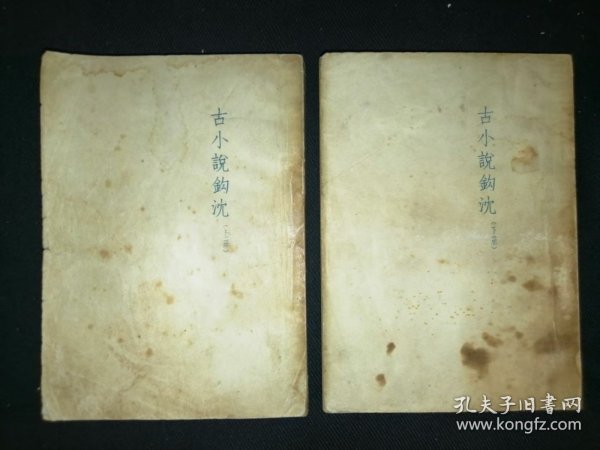 古小說鈎沈(上冊)
古小說鈎沈(下冊)
孔夫子旧书网
www.kongfz.com